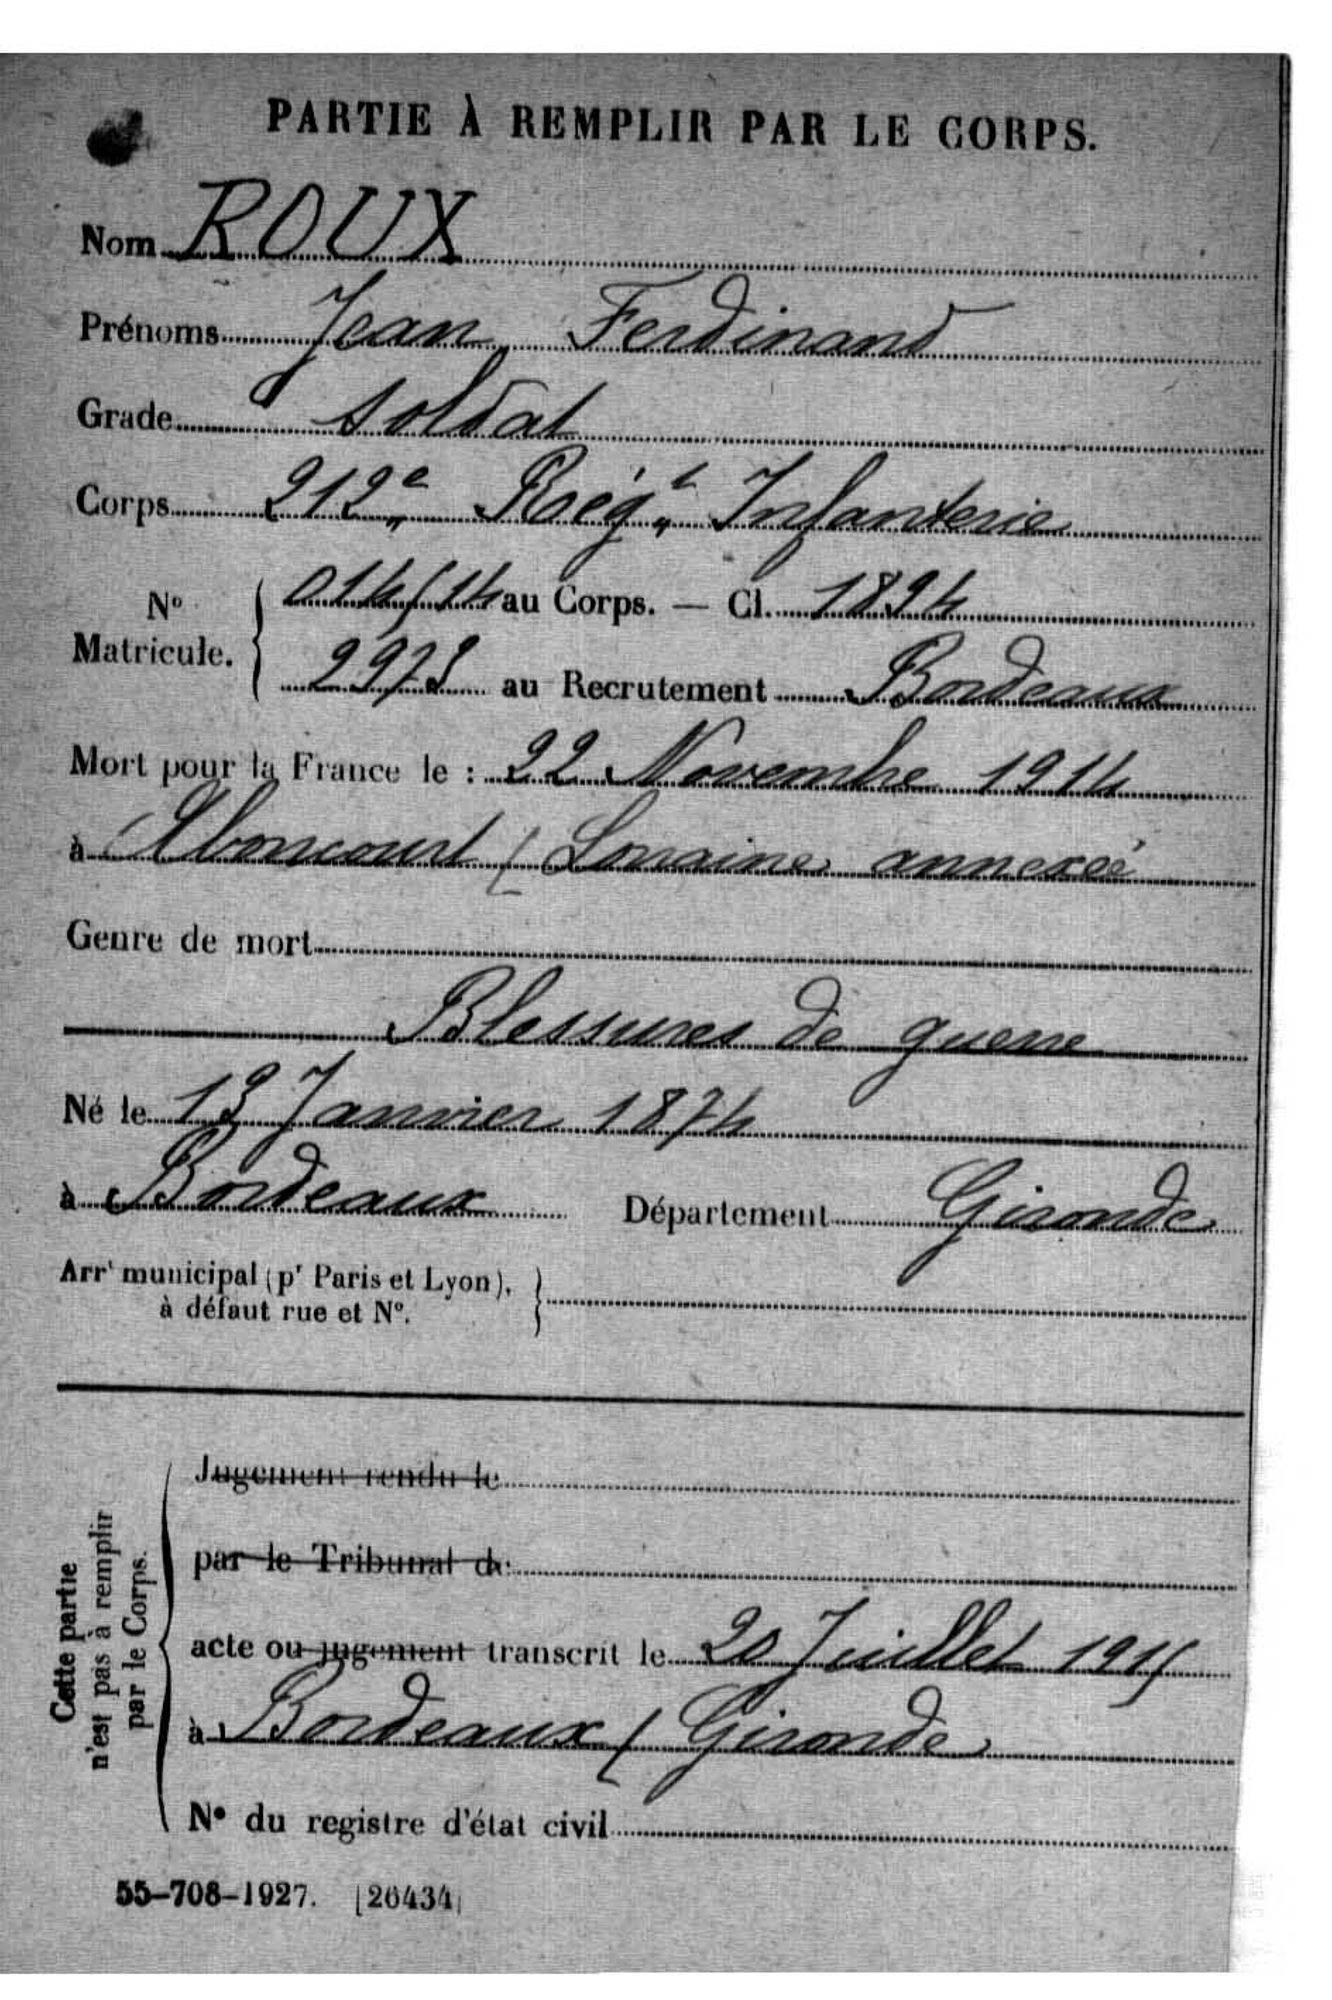 PARTIE À REMPLIR PAR LE CORPS.
Nom ROUX
Prénoms Jean Ferdinand
Grade Soldat
Corps 212e Régt Infanterie
No Matricule. 014514 au Corps. — Cl. 1894
2972 au Recrutement Bordeaux
Mort pour la France le : 22 Novembre 1914
à Aboncourt ( Lorraine annexée
Genre de mort
Blessures de guerre
Né le 13 Janvier 1874
à Bordeaux Département Gironde
Arrt municipal (pr Paris et Lyon),
à défaut rue et No.
Cette partie
n'est pas à remplir
par le Corps.
Jugement rendu le
par le Tribunal de
acte ou jugement transcrit le 20 Juillet 1915
à Bordeaux ( Gironde
No du registre d'état civil
55-708-1927. [26434]